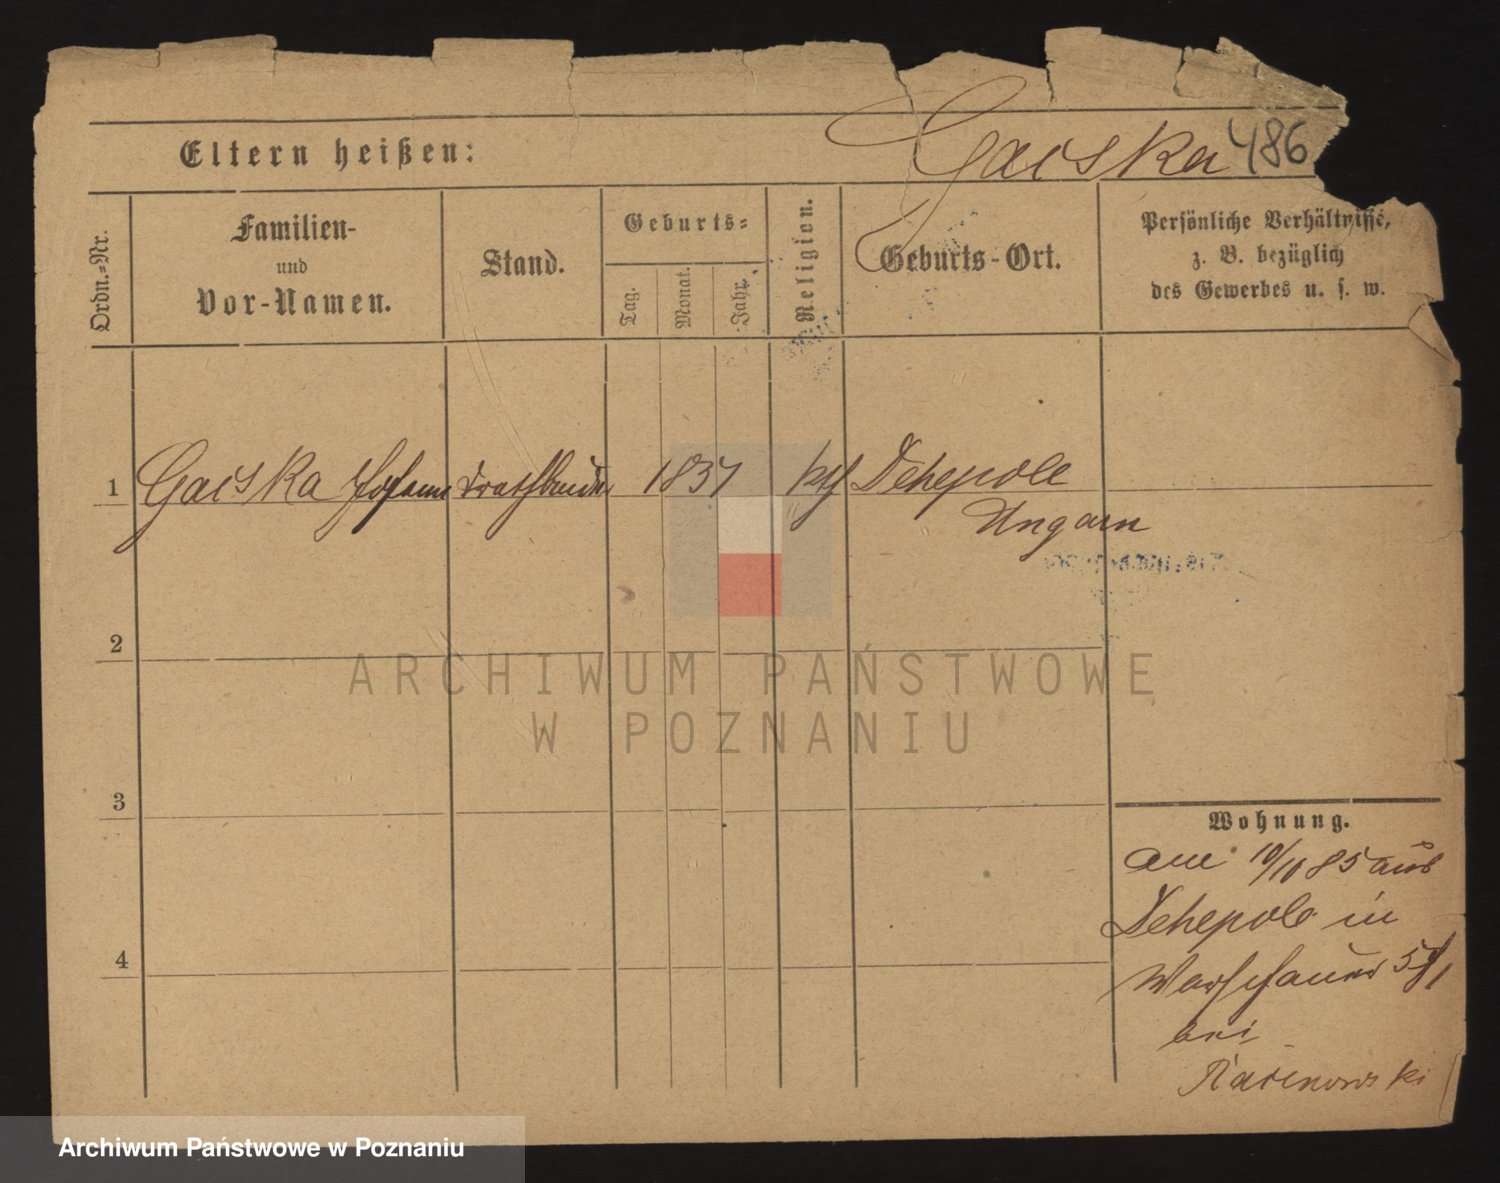 Gaiska 486
Eltern heißen:
Ordn.-Nr.
Familien-
und
Vor-Namen.
Stand.
Geburts-
Tag.
Monat.
Jahr.
Religion.
Geburts-Ort.
Persönliche Verhältnisse,
z. B. bezüglich
des Gewerbes u. s. w.
1 Gaiska Johann Drathbinder 1837 kth Dehepole
Ungarn
2
3
4
Wohnung.
am 10/10 85 aus
Dehepole in
Warschauer
bei
ARCHIWUM PAŃSTWOWE
W POZNANIU
Archiwum Państwowe w Poznaniu